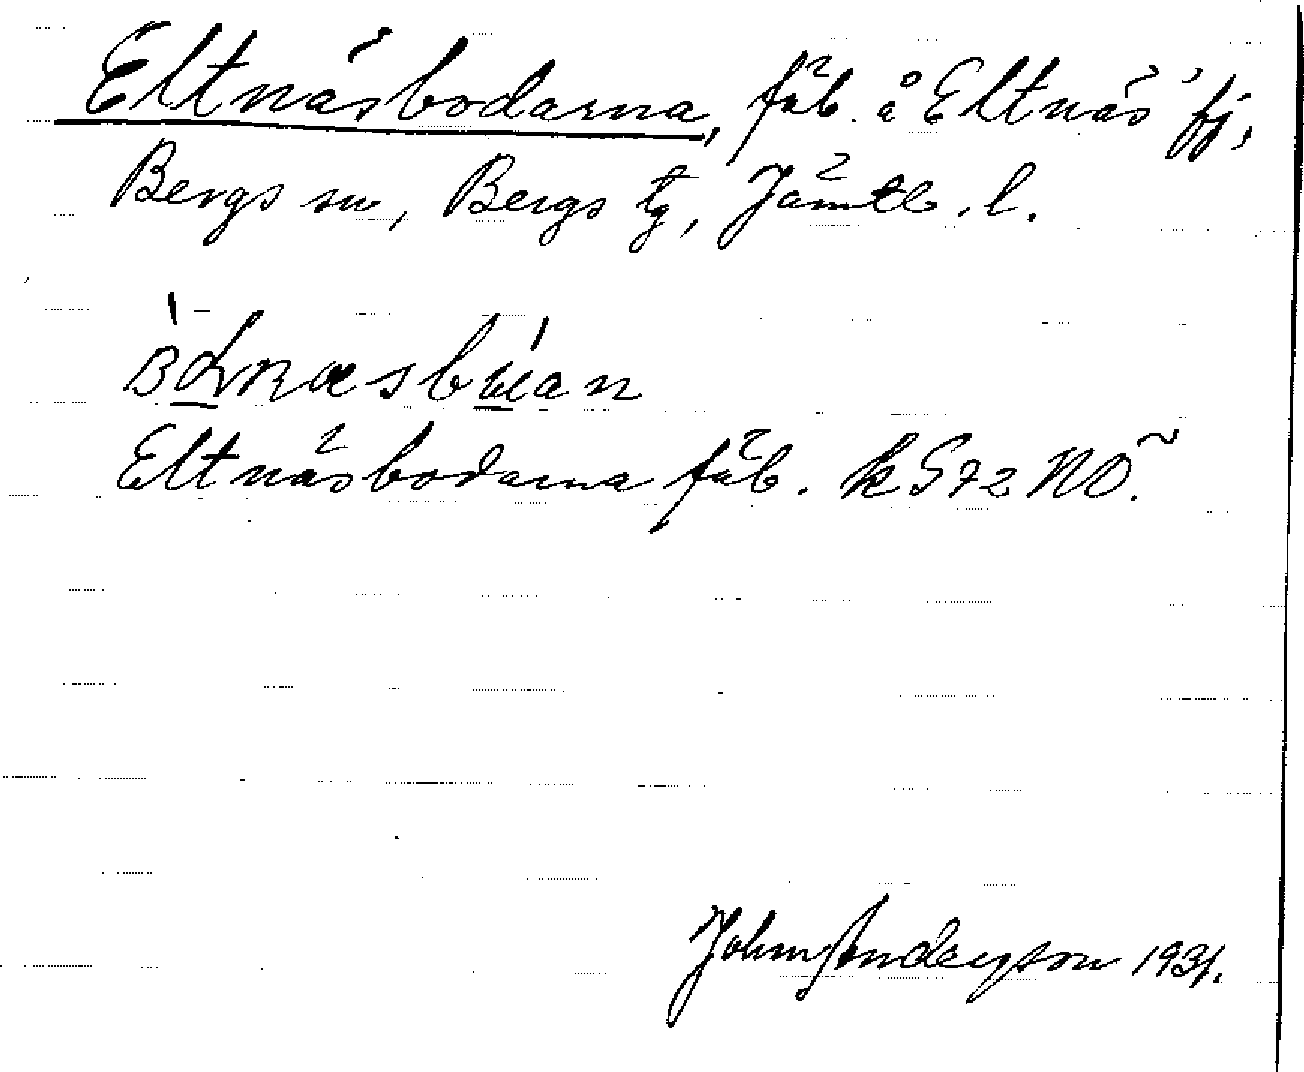 Eltnäsbodarna, fäb. å Eltnäs fj,
Bergs sn, Bergs tg, Jämtl. l.
Eltnäsbodarna fäb. k S72 NÖ.
John Anderson 1931.